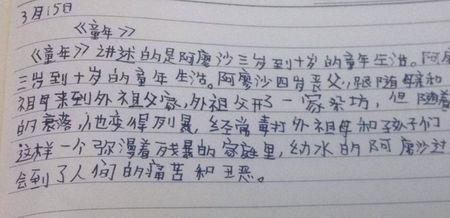 3月15日
《童年》
《童年》讲述的是阿廖沙三岁到十岁的童年生活。阿廖
三岁到十岁的童年生活。阿廖沙四岁丧父,跟随母亲和
祖母来到外祖父家,外祖父开了一家染坊,但随着
的衰落,他变得列暴,经常毒打外祖母和孩子们
这样一个弥漫着残暴的家庭里,幼小的阿廖沙过
会到了人间的痛苦和丑恶。